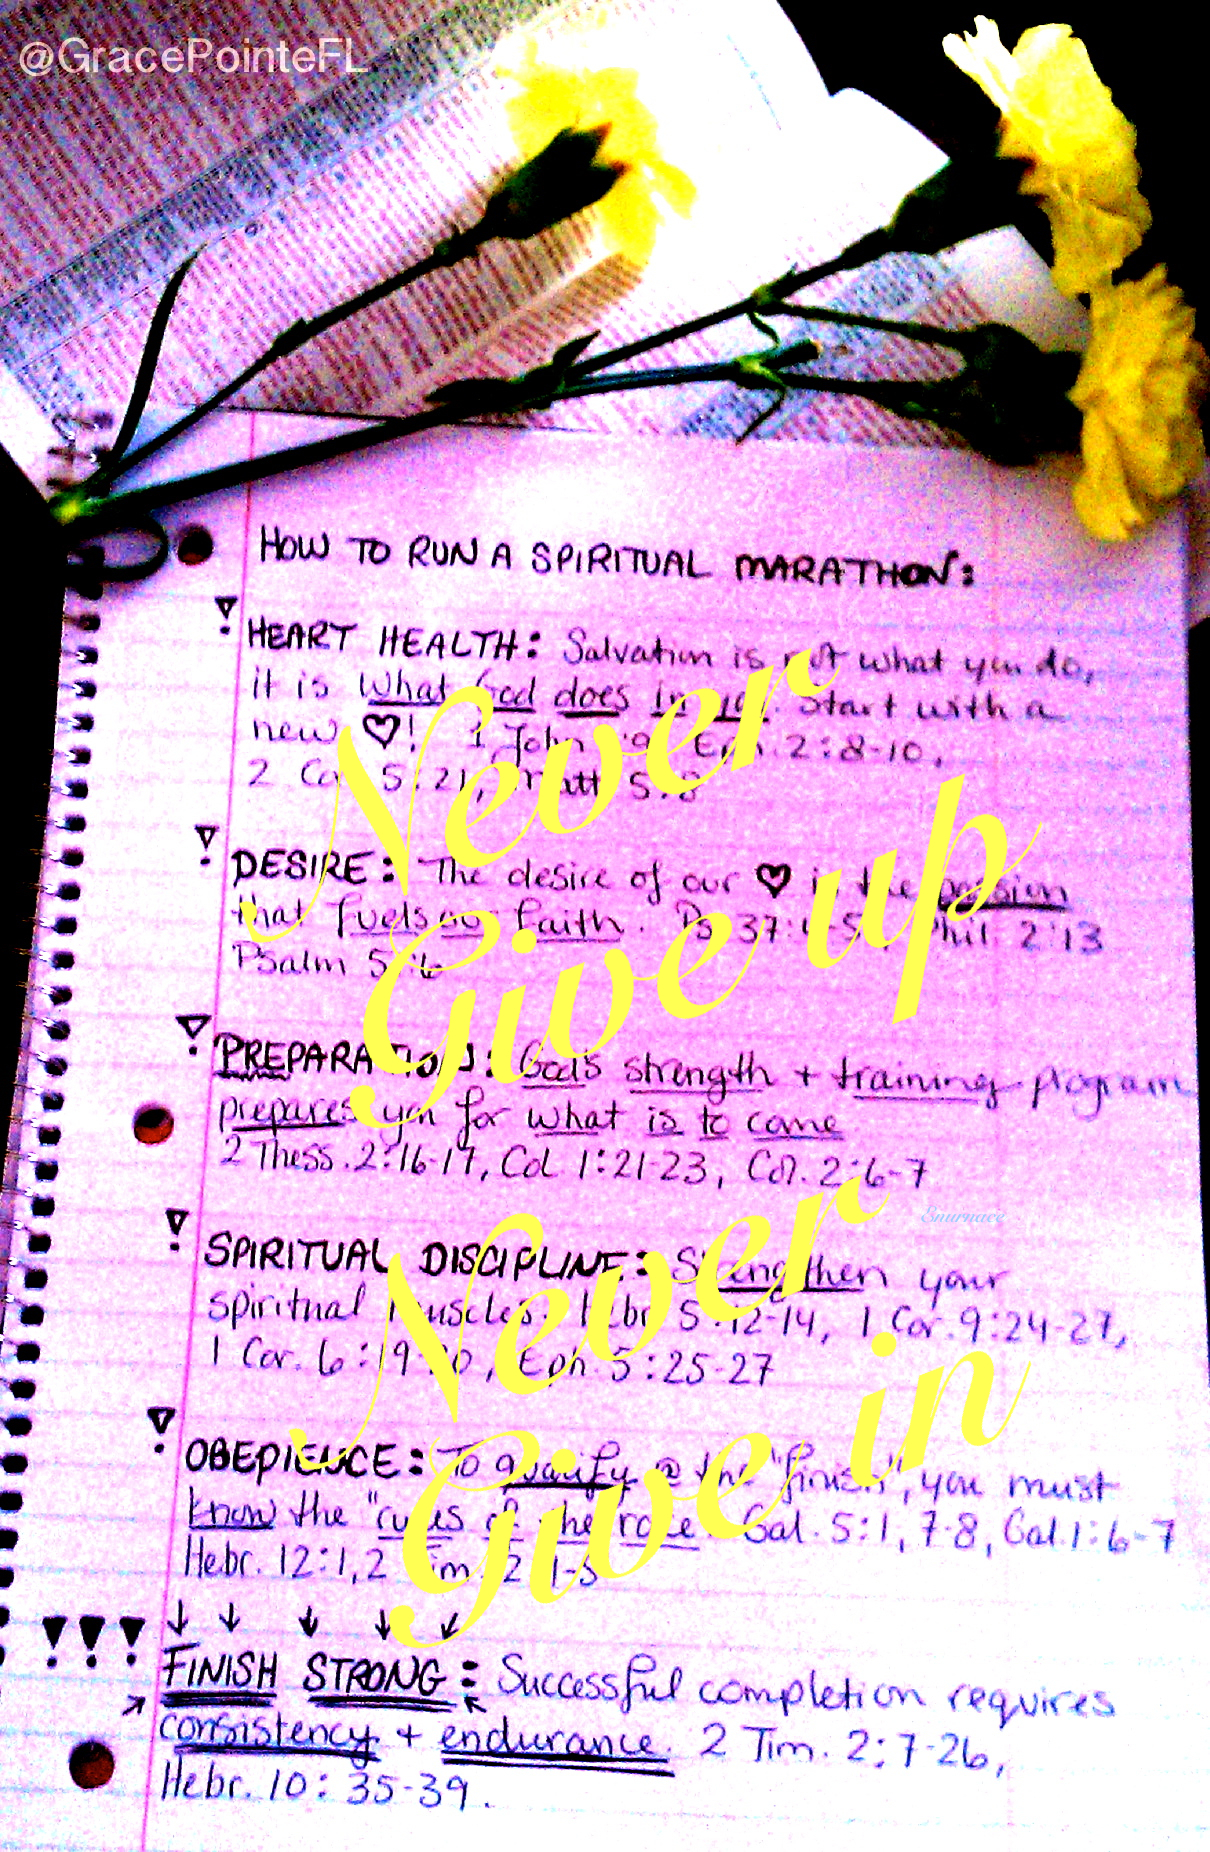 @GracePointeFL
HOW TO RUN A SPIRITUAL MARATHON:
HEART HEALTH: Salvation is not what you do,
it is what God does in you. Start with a
new ♡! 1 John :9 Eph. 2:8-10,
2 Cor 5:21, Matt 5:8
DESIRE: The desire of our ♡ is the passion
that fuels our faith. Ps. 37:4-5, Phil. 2:13
Psalm
PREPARATION: God's strength + training program
prepares you for what is to come
2 Thess. 2:16-17, Col. 1:21-23, Col. 2:6-7
SPIRITUAL DISCIPLINE: Strengthen your
spiritual muscles. Hebr 5:12-14, 1 Cor. 9:24-27,
1 Cor. 6:19-20, Eph. 5:25-27
OBEDIENCE: To qualify @ the "finish", you must
know the "rules of the race Gal. 5:1, 7-8, Gal. 1:6-7
Hebr. 12:1, 2 Tim. 2 1-5
FINISH STRONG: Successful completion requires
consistency + endurance. 2 Tim. 2:7-26,
Hebr. 10:35-39.
Never
Give up
Never
Give in